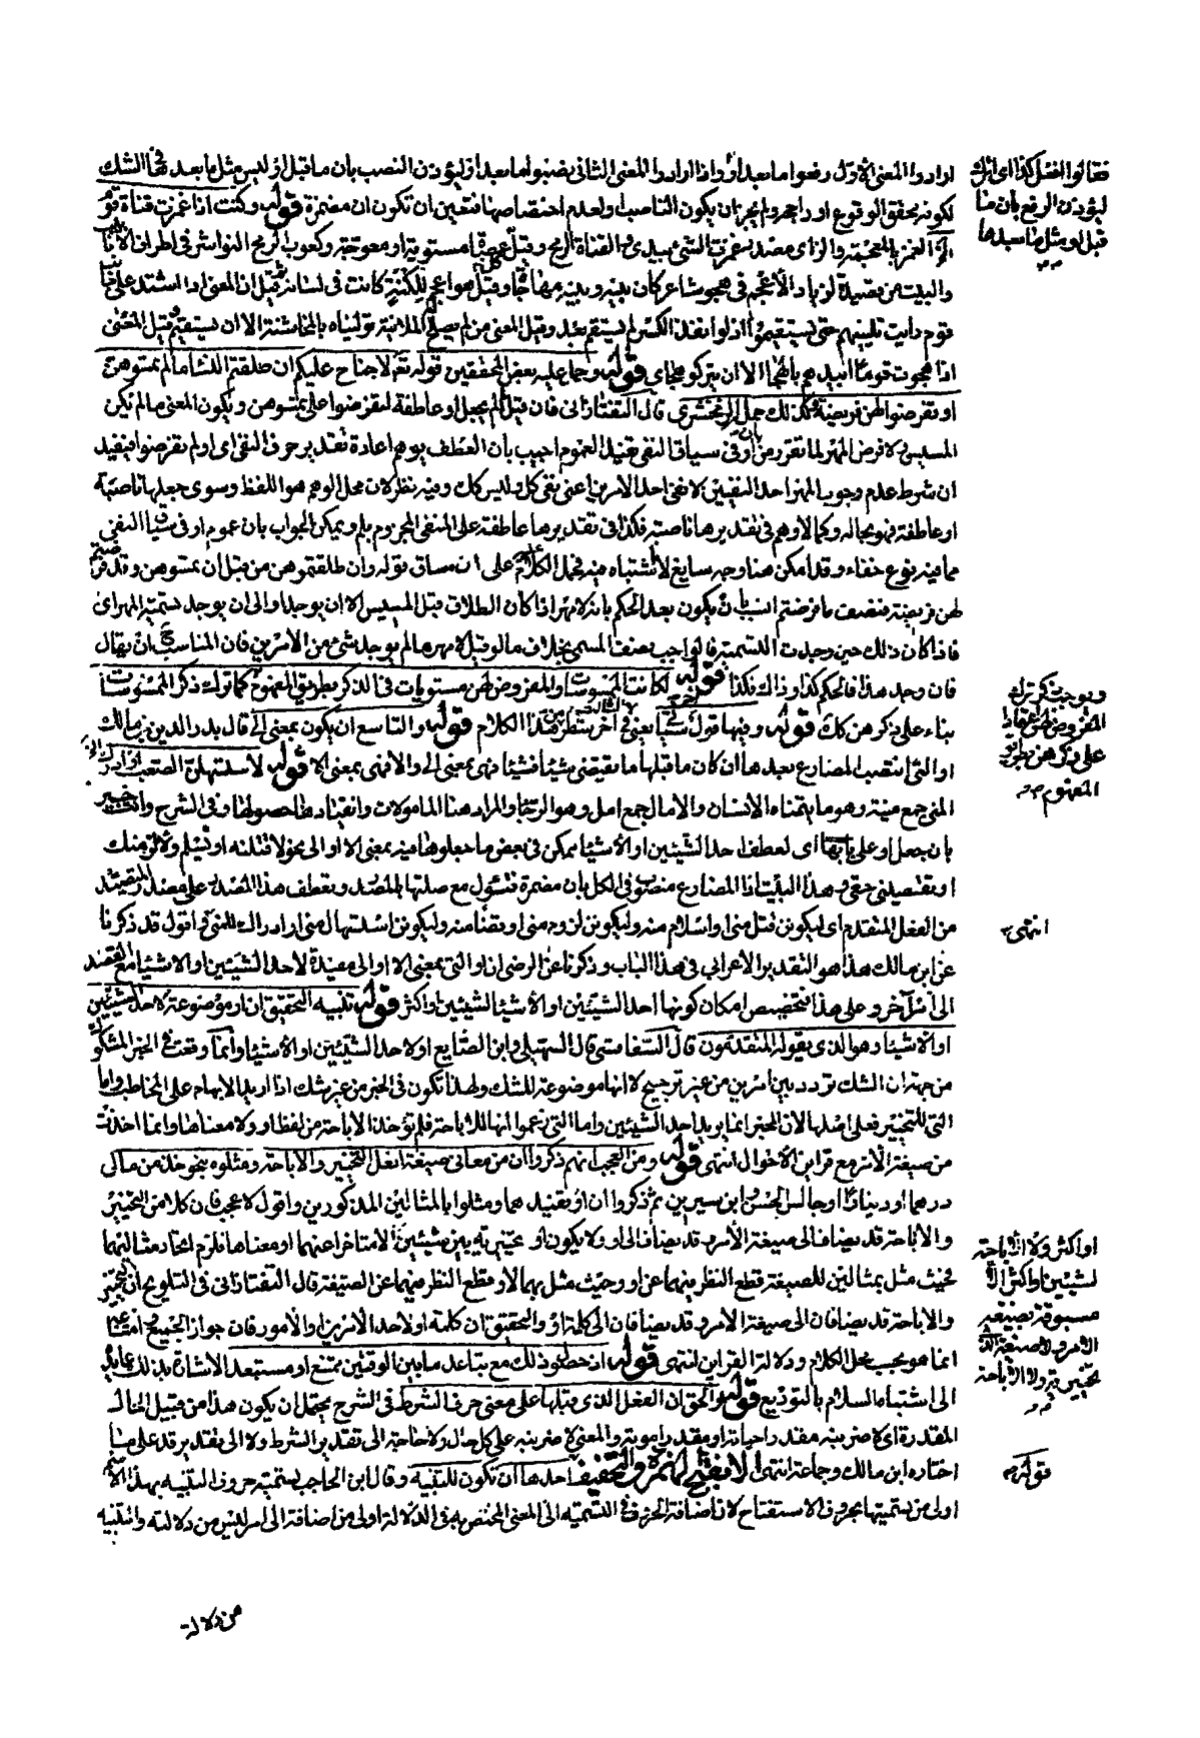 ارادوا المعنى الاول رفعوا ما بعد أو واذا ارادوا المعنى الثانى نصبوا ما بعد او ليؤذن النصب بان ما قبل او ليس مثل ما بعدها فى الشك
لكونه محقق الوقوع او راجح ولم يجز ان يكون الناصب او لعدم اختصاصها فتعين ان تكون ان مضمرة قوله وكنت اذا غمزت قناة قوم
الغمز بالمعجمة والزاى مصدر غمزت الشئ بيدى والقناة الرمح وقيل عصا مستوية او معوجة وكعوب الرمح النواشز فى اطراف الانابيب
والبيت من قصيدة لزياد الأعجم فى هجو شاعر كان بينه وبينه مهاجاة وقيل هو اعجم للكنة كانت فى لسانه قيل ان المعنى اذا اشتد على
قوم رايت تليينهم حتى يستقيموا اذ لو انفذ الكسر لم يستقم بعد وقيل المعنى من لم يصلح الملاينة توليناه بالمخاشنة الا ان يستقيم وقيل المعنى
اذا هجوت قوما ابيدهم بالهجا الا ان يتركوا هجاى قوله وحمل عليه بعض المحققين قوله تعم لا جناح عليكم ان طلقتم النسا ما لم تمسوهن
او تفرضوا لهن فريضة وكذلك حمل الزمخشرى قال التفتازانى فان قيل لم لم يجعل او عاطفة لتفرضوا على تمسوهن ويكون المعنى ما لم يكن
المسيس ولا فرض المهر لما تقرر من ان او فى سياق النفى تفيد العموم اجيب بان العطف يوهم اعادة تقدير حرف النفى اى او لم تفرضوا فيفيد
ان شرط عدم وجوب المهر احد النفيين لا نفى احد الامرين اعنى نفى كل وليس كك وفيه نظر لان محل الوهم هو اللفظ وسوى جعلها ناصبة
او عاطفة فهو بحاله وكما لا وهم فى تقديرها ناصبة فكذا فى تقديرها عاطفة على المنفى المجزوم بلم ويمكن الجواب بان عموم او فى سياق النفى
مما فيه نوع خفاء وقد امكن هنا وجه سايغ لا اشتباه فيه فحمل الكلام على ان مساق قوله وان طلقتموهن من قبل ان تمسوهن وقد فرضتم
لهن فريضة فنصف ما فرضتم انسب بان يكون بعد الحكم بانه لا مهر اذا كان الطلاق قبل المسيس الا ان يوجد او الى ان يوجد تسمية المهر اى
فاذا كان ذلك حين وجدت التسمية فالواجب نصف المسمى بخلاف ما لو قيل لا مهر ما لم يوجد شئ من الامرين فان المناسب ان يقال
فان وجد هذا فالحكم كذا وذاك فكذا قوله لكانت الممسوسات والمفروض لهن مستويات فى الذكر بطريق العموم كما ترك ذكر الممسوسات
بناء على ذكرهن كك قوله وفيها قول يعنى فى آخر سطر من هذا الكلام قوله والتاسع ان يكون بمعنى الى قال بدر الدين بن مالك
او التى ينتصب المضارع بعدها ان كان ما قبلها مما ينقضى شيئا فشيئا فهى بمعنى الى والا فهى بمعنى الا قوله لاستسهلن الصعب او ادرك المنى
المنى جمع منية وهو ما يتمناه الانسان والامال جمع امل وهو الرجاء والمراد هنا المامولات وانقيادها حصولها وفى الشرح وانت خبير
بان جعل او على بابها اى لعطف احد الشيئين او الاشيا ممكن فى بعض ما جعلوها فيه بمعنى الا او الى نحو لاقتلنه او يسلم ولالزمنك
او تقضينى حقى وهذا البيت اذا المضارع منصوب فى الكل بان مضمرة فتئول مع صلتها بالمصدر ويعطف هذا المصدر على مصدر متصيد
من الفعل المتقدم اى ليكونن قتل منى او اسلام منه وليكونن لزوم منى او قضا منه وليكونن استسهال منى او ادراك للمنى اقول قد ذكرنا
عن ابن مالك هذا هو التقدير الاعرابى فى هذا الباب وذكرنا عن الرضى ان او التى بمعنى الا او الى مفيدة لاحد الشيئين او الاشيا مع القصد
الى امر آخر وعلى هذا فتخصيص امكان كونها احد الشيئين او الاشيا الشيئين او اكثر قوله تنبيه التحقيق ان او موضوعة لاحد الشيئين
او الاشياء وهو الذى يقوله المتقدمون قال السفاقسى قال السهيلى وابن الضايع او لاحد الشيئين او الاشيا وانما وقعت فى الخبر المشكوك
من جهة ان الشك تردد بين امرين من غير ترجيح لا انها موضوعة للشك ولهذا تكون فى الخبر من غير شك اذا اريد الابهام على المخاطب واما
التى للتخيير فعلى اصلها لان المخير انما يريد احد الشيئين واما التى زعموا انها للاباحة فلم تؤخذ الاباحة من لفظ او ولا معناها وانما اخذت
من صيغة الامر مع قراين الاحوال انتهى قوله ومن العجب انهم ذكروا ان من معانى صيغة افعل التخيير والاباحة ومثلوه بنحو خذ من مالى
درهما او دينارا او جالس الحسن او ابن سيرين ثم ذكروا ان او تفيدهما ومثلوا بالمثالين المذكورين واقول لا عجب فان كلا من التخيير
والاباحة قد يضاف الى صيغة الامر وقد يضاف الى او ولا يكون او تخييرية بين شيئين الا متاخرا عنهما او معناها فلزم اتحاد مثاليهما
فحيث مثل بمثالين للصيغة قطع النظر فيهما عن او وحيث مثل بهما لاو قطع النظر فيهما عن الصيغة قال التفتازانى فى التلويح ان التخيير
والاباحة قد يضافان الى صيغة الامر وقد يضافان الى كلمة او والتحقيق ان كلمة او لاحد الامرين او الامور فان جواز الجمع وامتناعه
انما هو بحسب محل الكلام ودلالة القراين انتهى قوله اذ حصول ذلك مع تباعد ما بين الوقتين ممتنع او مستبعد الاشارة بذلك عايد
الى اشتباه السلام بالتوديع قوله والحق ان الفعل الذى قبلها على معنى حرف الشرط فى الشرح يحتمل ان يكون هذا من قبيل الحال
المقدرة اى لاضربنه مقدرا حياته او مقدرا موته والمعنى لاضربنه على كل حال ولا حاجة الى تقدير الشرط ولا الى تقدير قد على ما
اختاره ابن مالك وجماعة انتهى الا بفتح الهمزة والتخفيف احدها ان تكون للتنبيه وقال ابن الحاجب تسمية حروف التنبيه بهذا الاسم
اولى من تسميتها بحروف الاستفتاح لان اضافة الحرف فى التسمية الى المعنى المختص به فى الدلالة اولى من اضافة الى امر ليس من دلالته والتنبيه
من دلالة
فقالوا افعل كذا اى اترك
ليؤذن الرفع بان ما
قبل او مثل ما بعدها
ويوجب ذكر ترك
المفروض لهن اعتمادا
على ذكرهن بطريق
المفهوم صح
انتهى
او اكثر ولا الاباحة
لشيئين او اكثر الا
مسبوقة بصيغة
الامر ولا صيغة
تخييرية ولا الاباحة
قوله